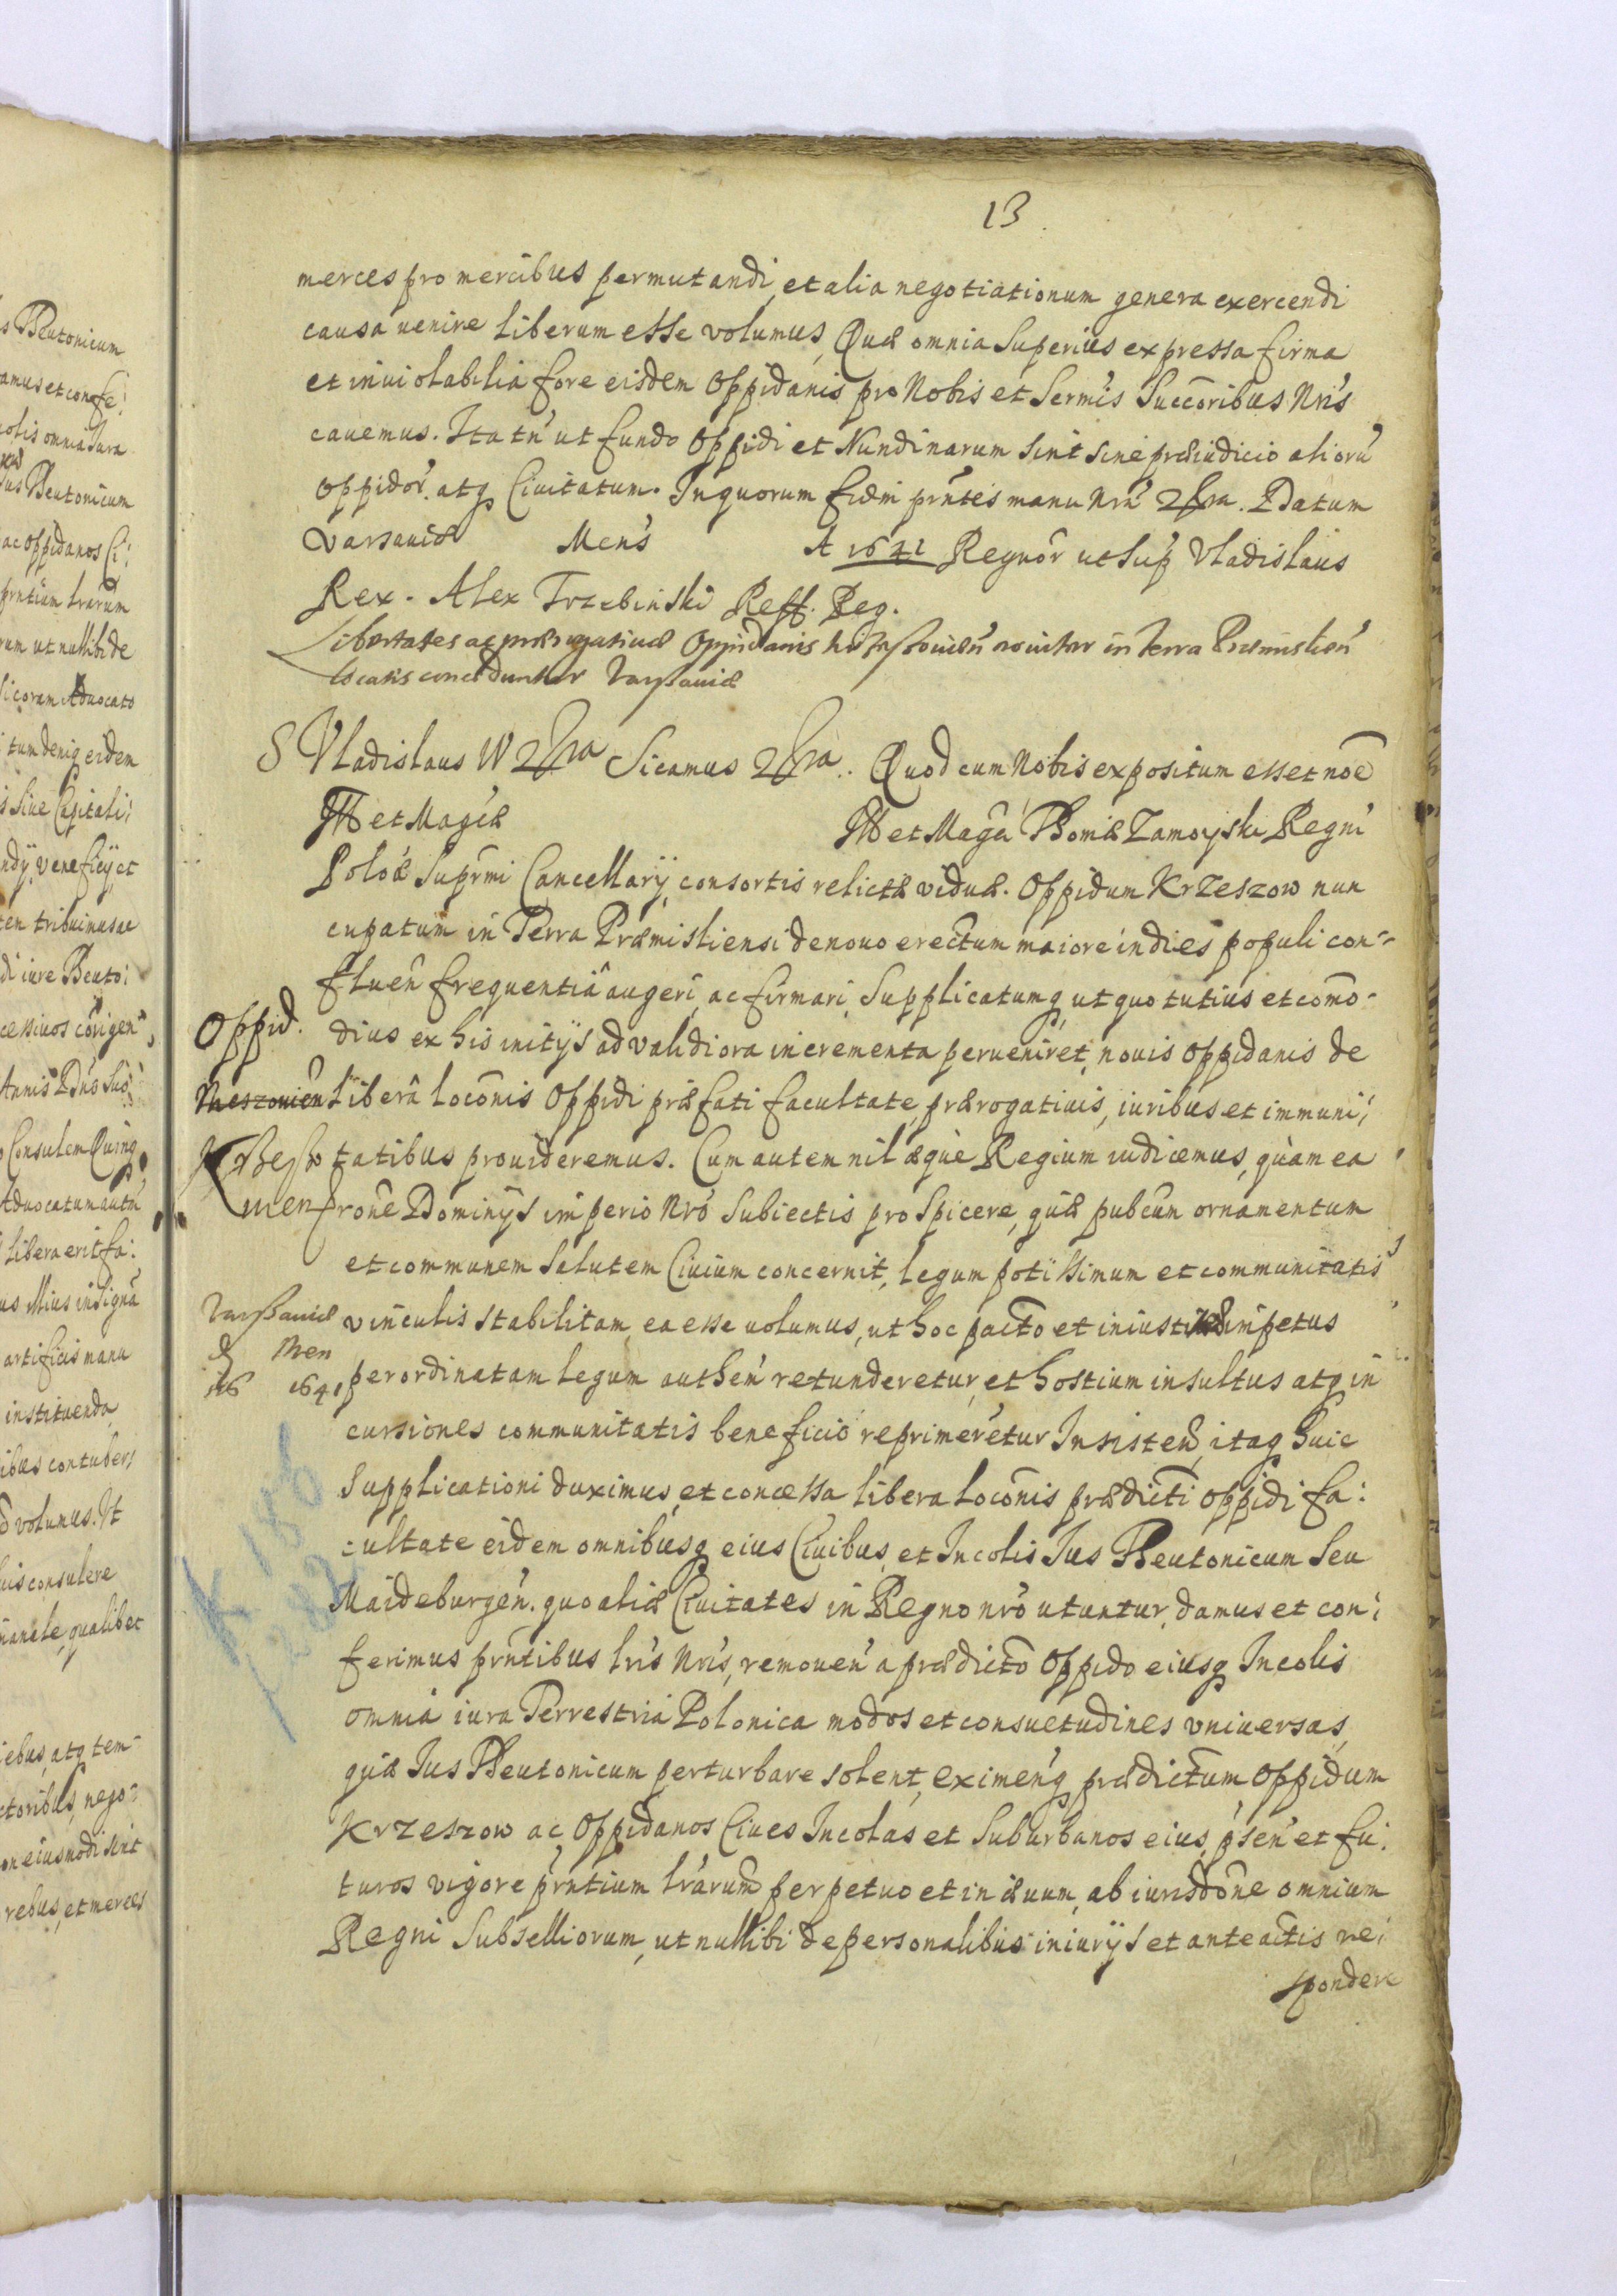 13
merces pro mercibus permutandi, et alia negotiationum genera exercendi
causa venire liberum esse volumus, Quæ omnia Superiùs expressa firma
et inviolabilia fore eisdem Oppidanis pro Nobis et Sermis Succoribus Nris
cavemus. Ita tn ut fundo Oppidi et Nundinarum sint sine præiudicio alioru
Oppidor. atq Civitatum. In quorum fidm prntes manu nra &ra. Datum
Varsaviæ Mens A 1641 Regnor ut sup Vladislaus
Rex. Alex Trzebinski Reff. Reg.
Libertates ac prærogativæ Oppidanis noviter in Terra Præmislien
locatis conceduntur Varssaviæ
S Vladislaus IV &ra Sicamus &ra. Quod cum Nobis expositum esset noē
M et Magcæ M et Magci Thomæ Zamoyski Regni
Poloæ Suprmi Cancellarij consortis relictæ viduæ. Oppidum Krzeszow nun
cupatum in Terra Præmisliensi de novo erectum maiore in dies populi con-
fluen frequentiâ augeri, ac firmari, Supplicatumq, ut quo tutius et como-
Oppid.
dius ex his initijs ad validiora incrementa perveniret, novis Oppidanis de
liberâ loconis Oppidi præfati facultate, prærogativis, iuribus et immuni:
tatibus provideremus. Cum autem nil æquè Regium iudicemus, quàm ea
rone Dominijs imperio Nro subiectis prospicere, quæ pubcun ornamentum
et communem salutem Civium concernit, legum potissimum et communitatis
Varssaviæ
vinculis stabilitam, ea esse volumus, ut hoc pacto et iniusti impetus
Men
1641
per ordinatam legum authen retunderetur, et hostium insultus atq in
cursiones communitatis beneficio reprimeretur Insisten, itaq huic
Supplicationi duximus, et concessa libera loconis prædicti Oppidi fa:
cultate eidem omnibusq eius Civibus, et Incolis Ius Theutonicum seu
Maideburgen. quo aliæ Civitates in Regno nro utuntur, damus et con:
ferimus prntibus lris Nris, removen a prædicto Oppido eiusq Incolis
omnia iura Terrestria Polonica modos et consuetudines universas,
quæ Ius Theutonicum perturbare solent, eximenq prædictum Oppidum
Krzeszow ac Oppidanos Cives Incolas et Suburbanos eius, psen et fu:
turos vigore prntium lrarum perpetuo et in ævum, ab iurisdone omnium
Regni Subselliorum, ut nullibi de personalibus iniurijs et ante actis re:
spondere